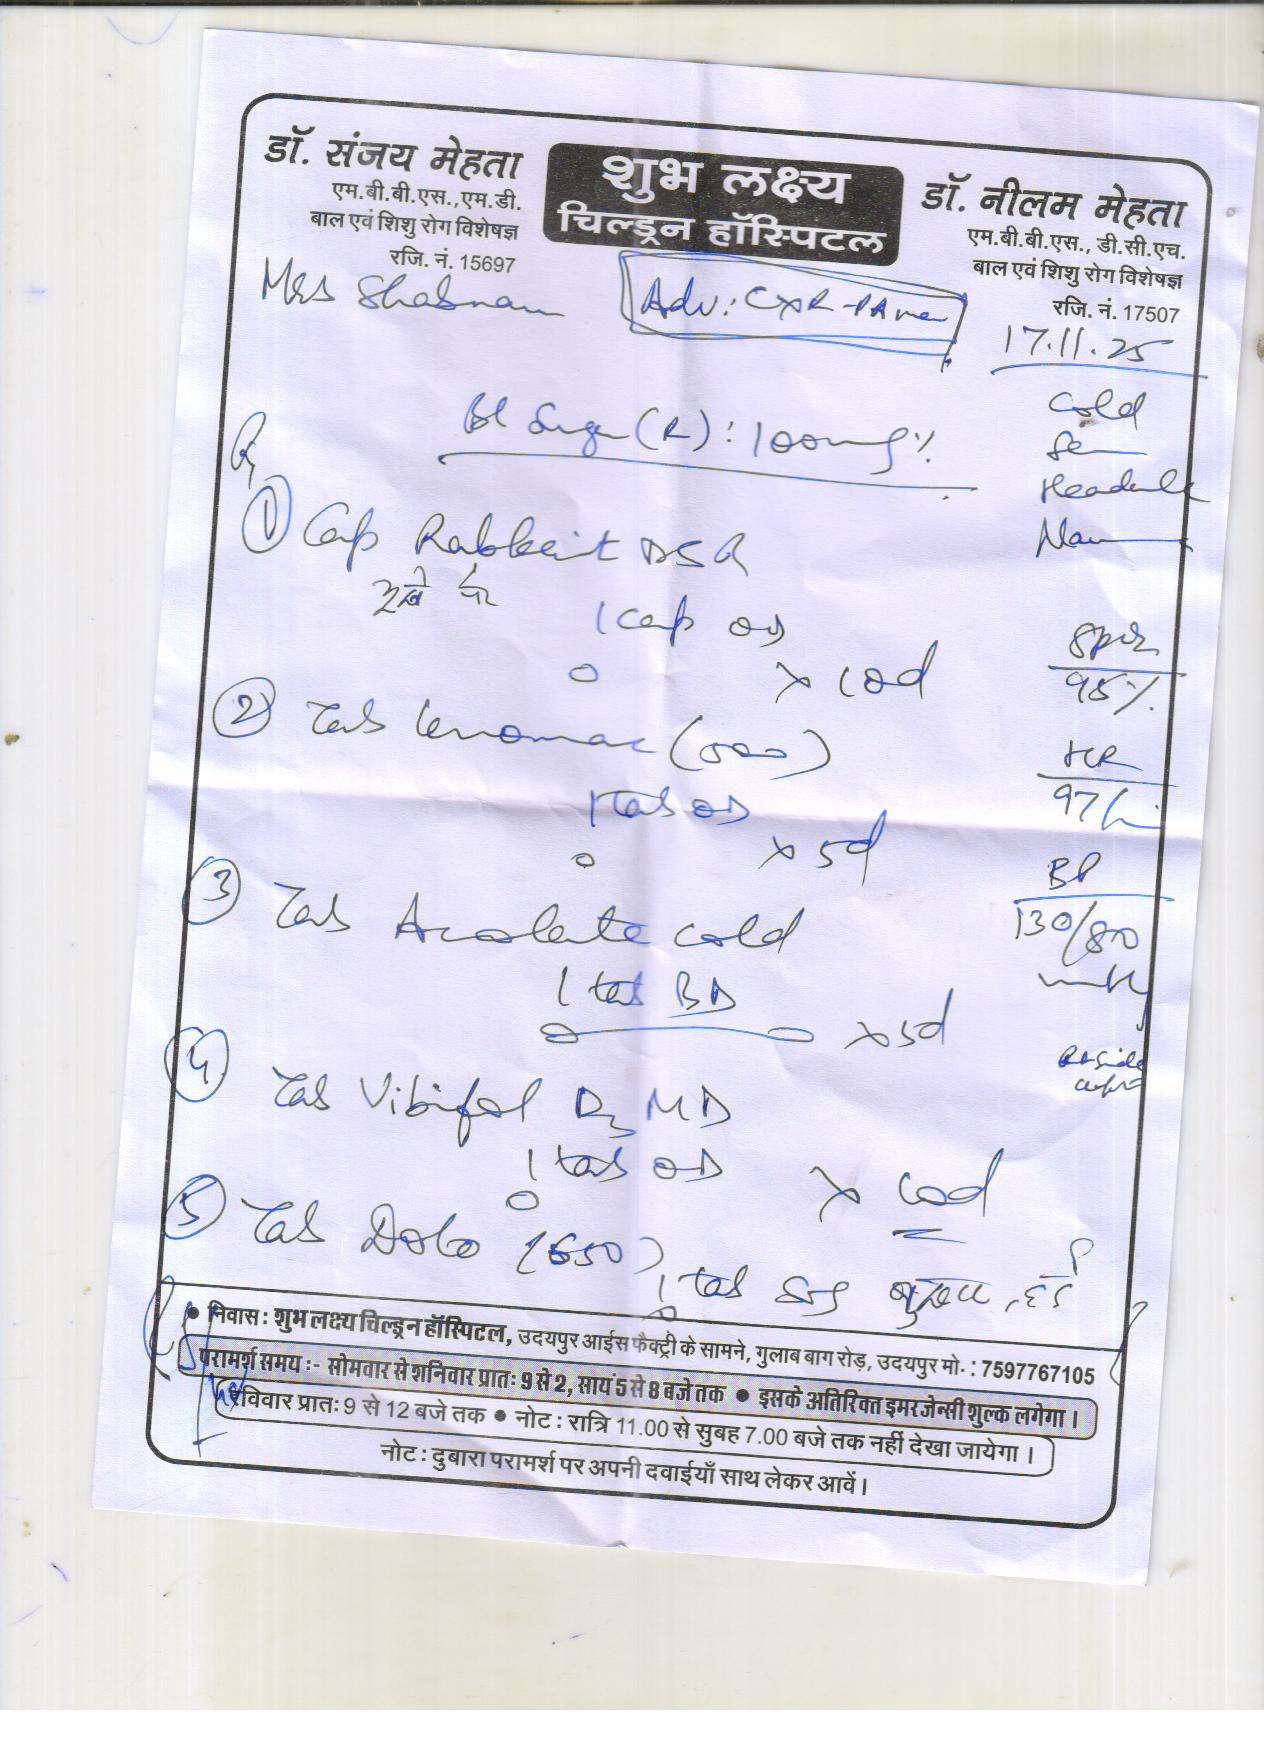 डॉ. संजय मेहता
एम.बी.बी.एस.,एम.डी.
बाल एवं शिशु रोग विशेषज्ञ
रजि. नं. 15697
शुभ लक्ष्य
चिल्ड्रन हॉस्पिटल
डॉ. नीलम मेहता
एम.बी.बी.एस., डी.सी.एच.
बाल एवं शिशु रोग विशेषज्ञ
रजि. नं. 17507
Mrs Shabnam
Adv: CXR-PA view
17.11.25
Cold
Headache
Bl Sugar (R) : 100mg%
SpO2
98%
HR
97/
BP
130/80
Rt side
① Cap DSR
1 cap OD
x 10d
② Tab (500)
1 tab OD
x 5d
③ Tab cold
1 tab BD
x 5d
④ Tab D3 MD
1 tab OD
x 10d
⑤ Tab Dolo (650)
1 tab बुखार, दर्द
● निवास : शुभ लक्ष्य चिल्ड्रन हॉस्पिटल, उदयपुर आईस फैक्ट्री के सामने, गुलाब बाग रोड़, उदयपुर मो. : 7597767105
परामर्श समय :- सोमवार से शनिवार प्रातः 9 से 2, सायं 5 से 8 बजे तक ● इसके अतिरिक्त इमरजेन्सी शुल्क लगेगा ।
रविवार प्रातः 9 से 12 बजे तक ● नोट : रात्रि 11.00 से सुबह 7.00 बजे तक नहीं देखा जायेगा ।
नोट : दुबारा परामर्श पर अपनी दवाईयाँ साथ लेकर आवें।